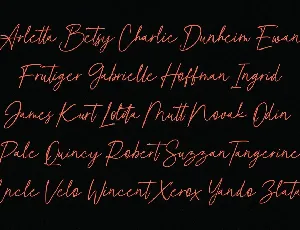 Arletta Betsy Charlie Dunheim Ewan
Frutiger Gabrielle Hoffman Ingrid
James Kurt Lolita Mutt Novak Odin
Pale Quincy Robert Suzzan Tangerine
Uncle Velo Wincent Xerox Yando Zlata